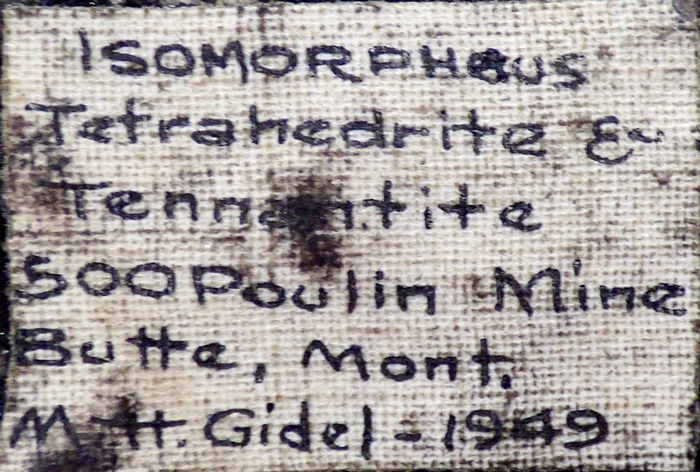 ISOMORPHOUS
Tetrahedrite &
Tennantite
500 Poulin Mine
Butte, Mont.
M.H. Gidel - 1949